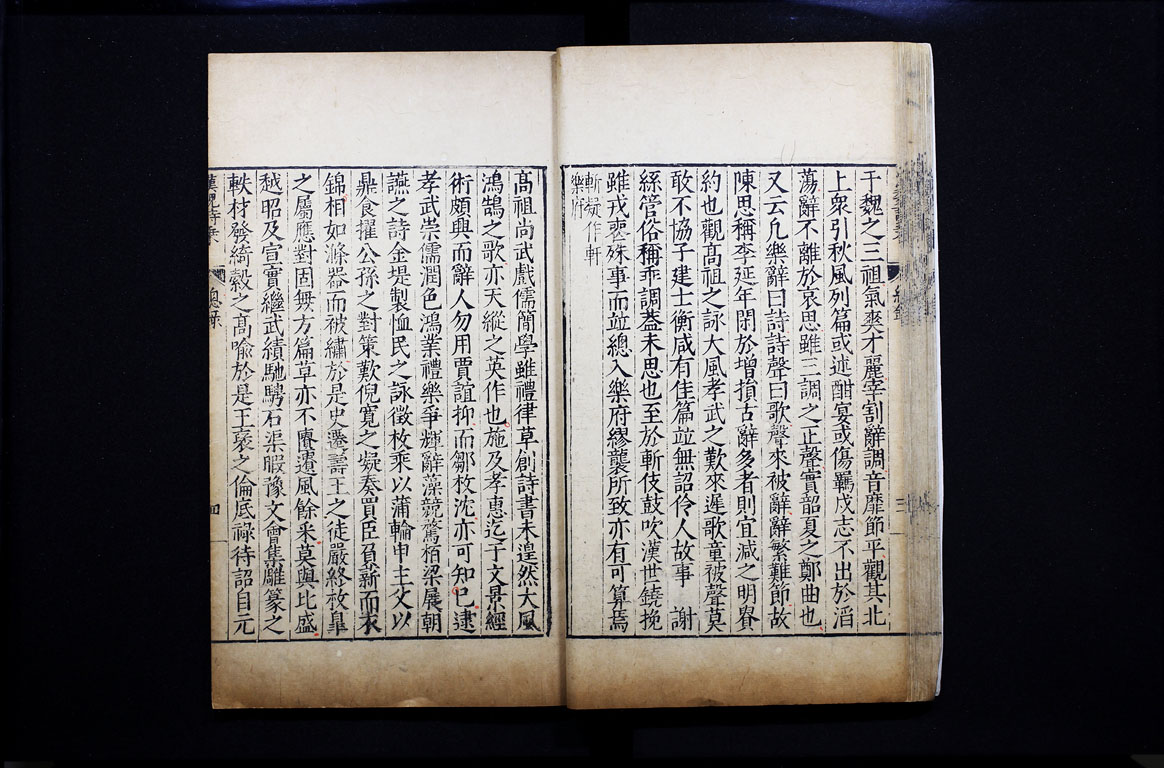 于魏之三祖氣爽才麗宰割辭調音靡節平觀其北
上衆引秋風列篇或述酣宴或傷羈戍志不出於滔
蕩辭不離於哀思雖三調之正聲實韶夏之鄭曲也
又云凢樂辭曰詩詩聲曰歌聲來被辭辭繁難節故
陳思稱李延年閑於增損古辭多者則宜減之明貴
約也觀高祖之詠大風孝武之歎來遲歌童被聲莫
敢不協子建士衡咸有佳篇並無詔伶人故事 謝
絲管俗稱乖調葢未思也至於斬伎鼓吹漢世鐃挽
雖戎喪殊事而並總入樂府繆襲所致亦有可算焉
斬疑作軒
樂府
三
高祖尚武戲儒簡學雖禮律草創詩書未遑然大風
鴻鵠之歌亦天縱之英作也施及孝惠迄于文景經
術頗興而辭人勿用賈誼抑而鄒枚沈亦可知已逮
孝武崇儒潤色鴻業禮樂爭輝辭藻競騖栢梁展朝
讌之詩金堤製恤民之詠徵枚乘以蒲輪申主父以
鼎食擢公孫之對策歎倪寬之疑奏買臣負薪而衣
錦相如滌器而被繡於是史遷壽王之徒嚴終枚臯
之屬應對固無方篇草亦不匱遺風餘采莫與比盛
越昭及宣實繼武績馳騁石渠暇豫文會集雕篆之
軼材發綺縠之高喻於是王褒之倫底祿待詔自元
漢魏詩乗
總錄
四